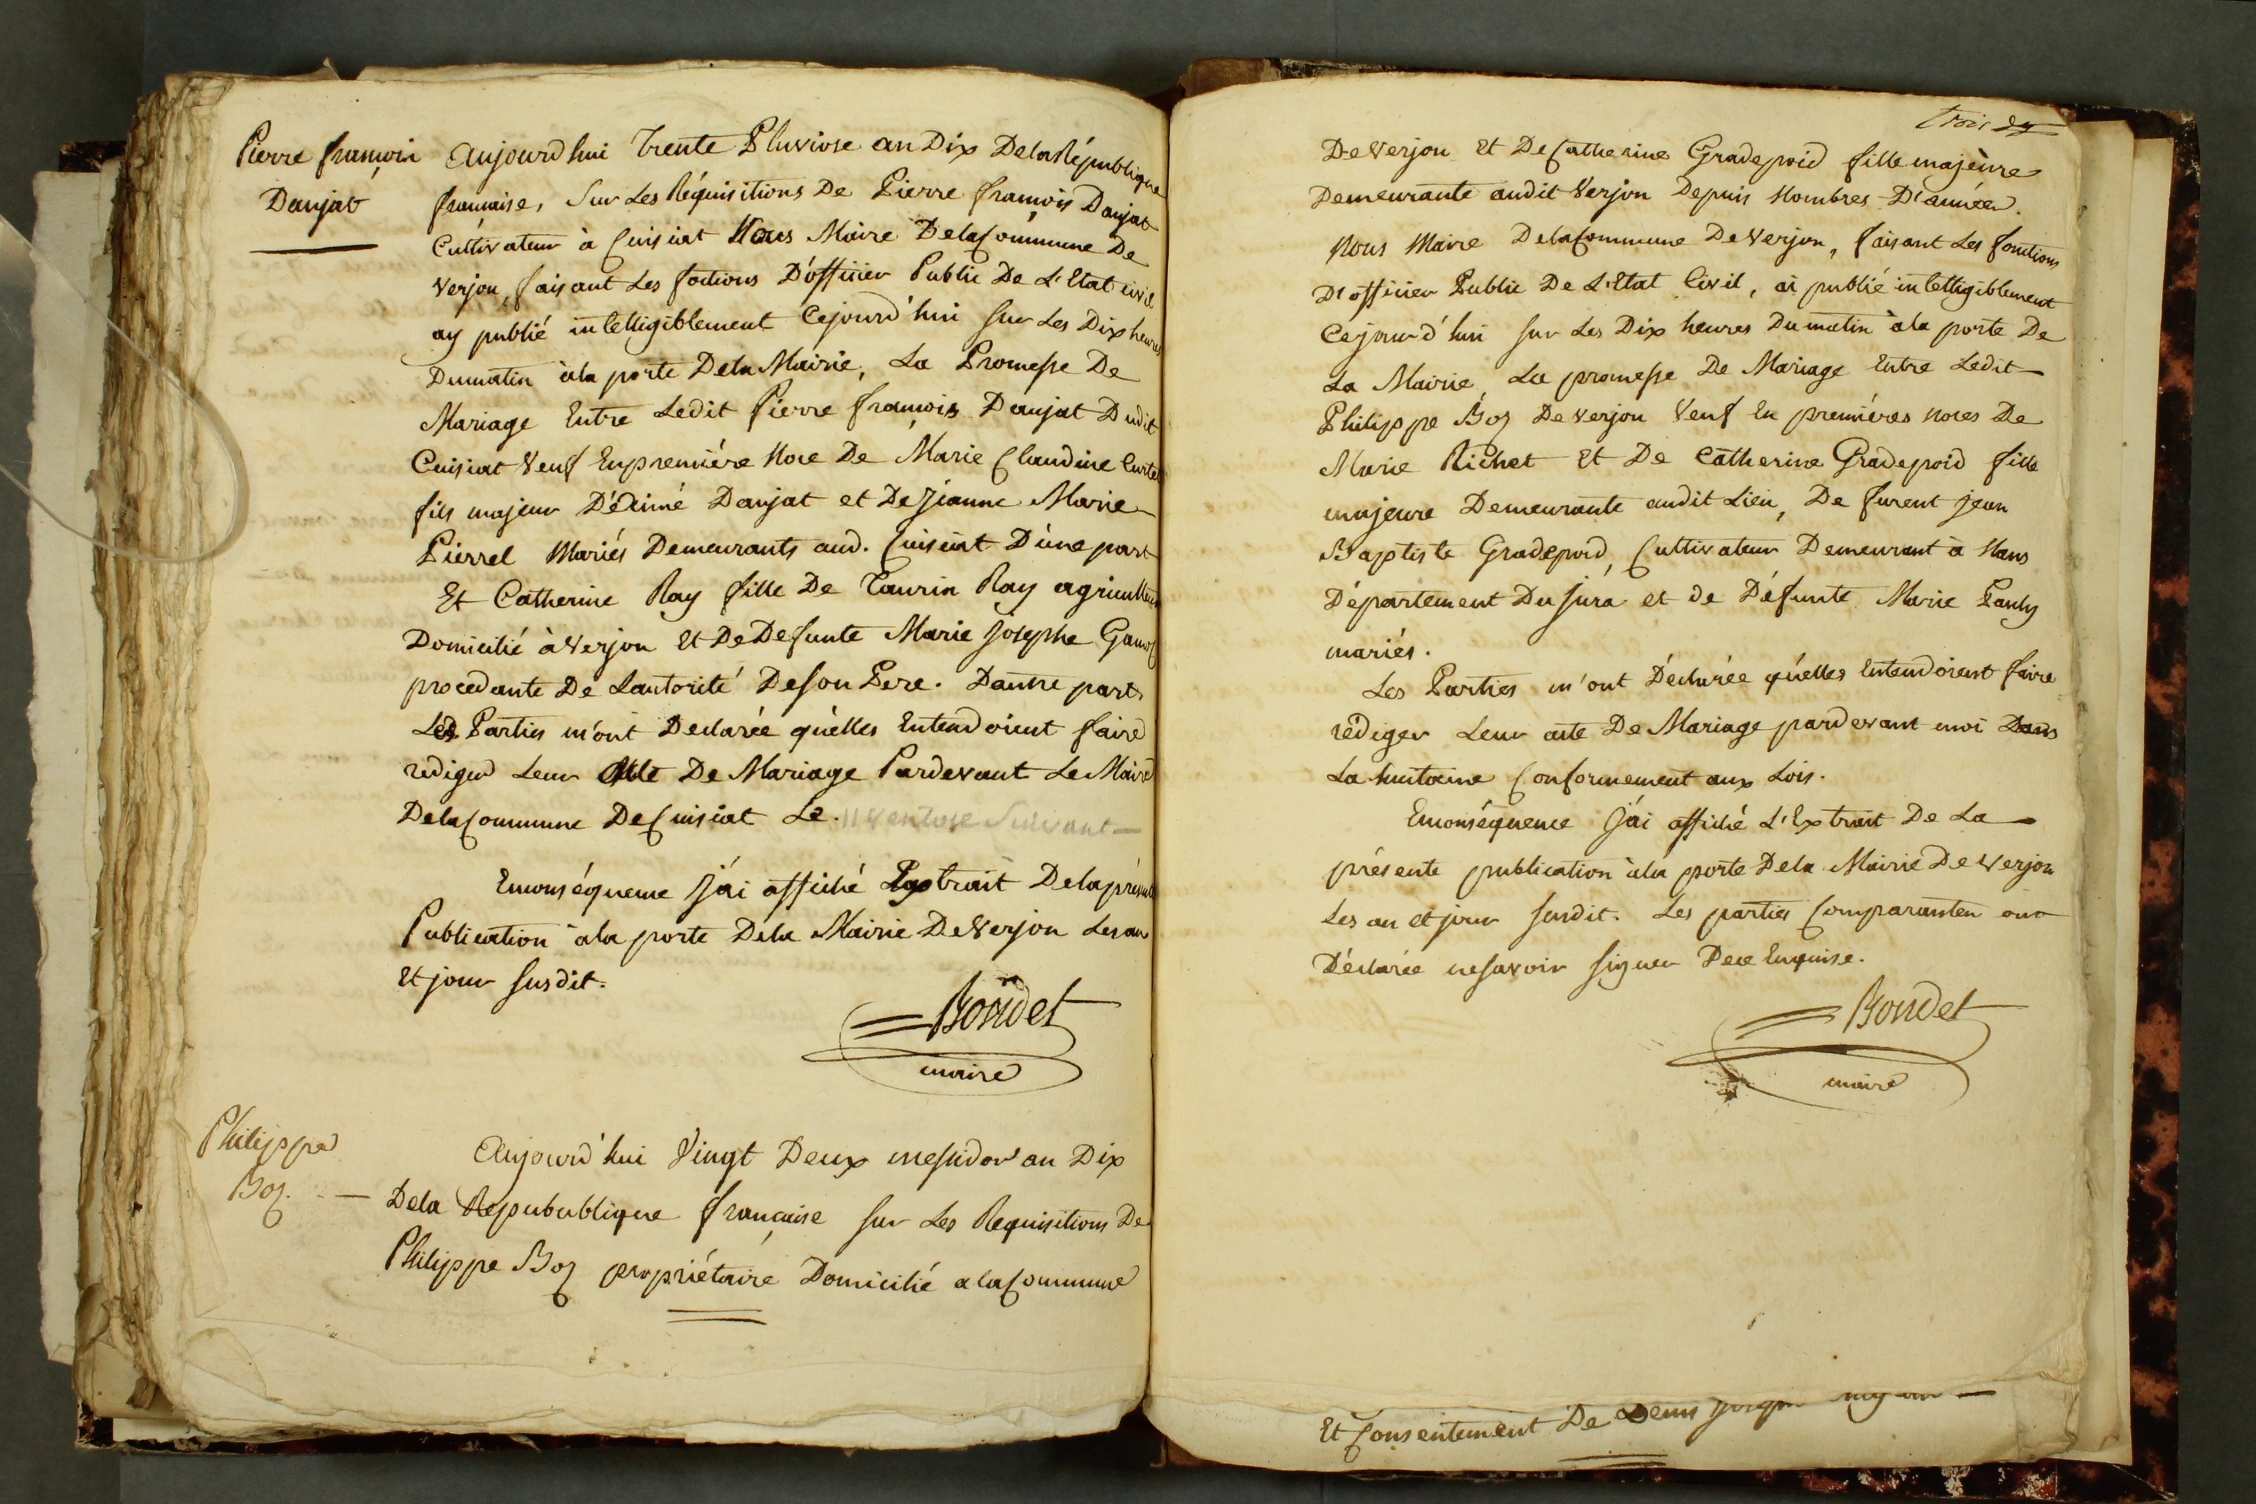 Pierre francois
Danjat
Aujourd'hui trente Pluviose an Dix De la République
francaise, Sur Les Réquisitions De Pierre francois Danjat
Cultivateur à Cuisiat Nous Maire De la Commune De
Verjon, faisant Les foctions D'officier Public De L'Etat civil
ay publié intelligiblement Cejourd'hui sur Les Dix heures
Du matin à la porte De la Mairie, La Promesse De
Mariage Entre Ledit Pierre francois Danjat Dudit
Cuisiat Veuf En premiére Noce De Marie Claudine
fils majeur D'édimé Danjat et De Jeanne Marie
Pierrel Mariés Demeurants aud. Cuisiat D'une part
Et Catherine Ray fille De Taurin Ray agriculteur
Domicilié à Verjon Et De Defunte Marie Josephe
procedante De Lautorité De son Pere. Dautre part
Les Parties m'ont Declarée qu'elles Entendoient faire
rediger Leur Acte De Mariage Pardevant Le Maire
De la Commune De Cuisiat Le. 11 ventose Suivant
En conséquence J'ai affiché Extrait De la présente
Publication à la porte De la Mairie De Verjon Les an
Et jour susdit.
Bondet
maire
Philippe
Boz.
Aujourd'hui Vingt Deux messidor an Dix
De la Repububliqne francaise sur Les Requisitions De
Philippe Boz propriétaire Domicilié a la Commune
trois
De Verjon Et De Catherine Gradepoid fille majeure
Demeurante audit Verjon Depuis Nombres D'année.
Nous Maire De la Commune De Verjon, faisant Les fonctions
D'officier Public De L'Etat Civil, ai publié intelligiblement
Cejourd'hui sur Les Dix heures Du matin à la porte De
La Mairie La promesse De Mariage Entre Ledit
Philippe Boz De Verjon Veuf En premiéres noces De
Marie Richet Et De Catherine Gradepoid fille
majeure Demeurante audit Lieu, De furent Jean
Baptiste Gradepoid, Cultivateur Demeurant à Nans
Département Du Jura et de Défunte Marie Pauly
mariés.
Les Parties m'ont Déclarée qu'elles Entendoient faire
rédiger Leur acte De Mariage pardevant moi Dans
La huitaine Conformement aux Lois.
En conséquence J'ai affiché L'Extrait De La
présente publication à la porte De la Mairie De Verjon
Les an et jour susdit. Les parties Comparanten ont
Déclarée ne savoir signer De ce Enquise.
Bondet
maire
Et Consentement De Denis